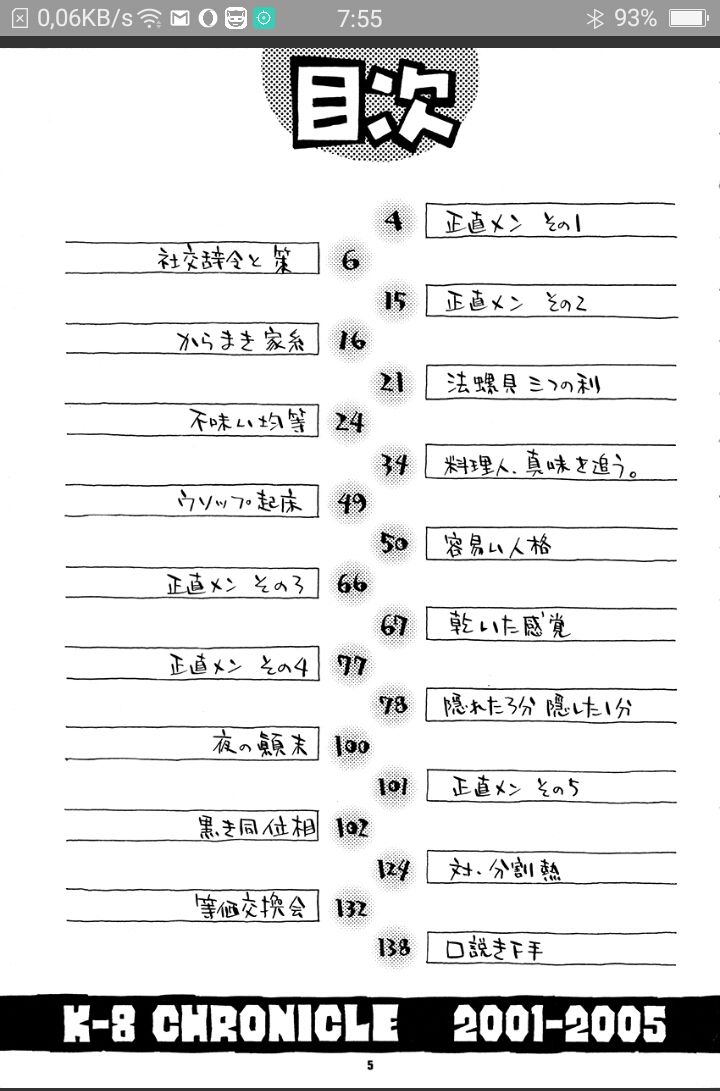 0,06KB/s 7:55 93%
目次
4 正直メン その1
社交辞令と策 6
15 正直メン その2
からまき家系 16
21 法螺貝 三つの利
不味い均等 24
34 料理人、真味を追う。
ウソップ起床 49
50 容易い人格
正直メン その3 66
67 乾いた感覚
正直メン その4 77
78 隠れた3分 隠した1分
夜の顛末 100
101 正直メン その5
黒き同位相 102
124 対・分割熱
等価交換会 132
138 口説き下手
K-8 CHRONICLE 2001-2005
5